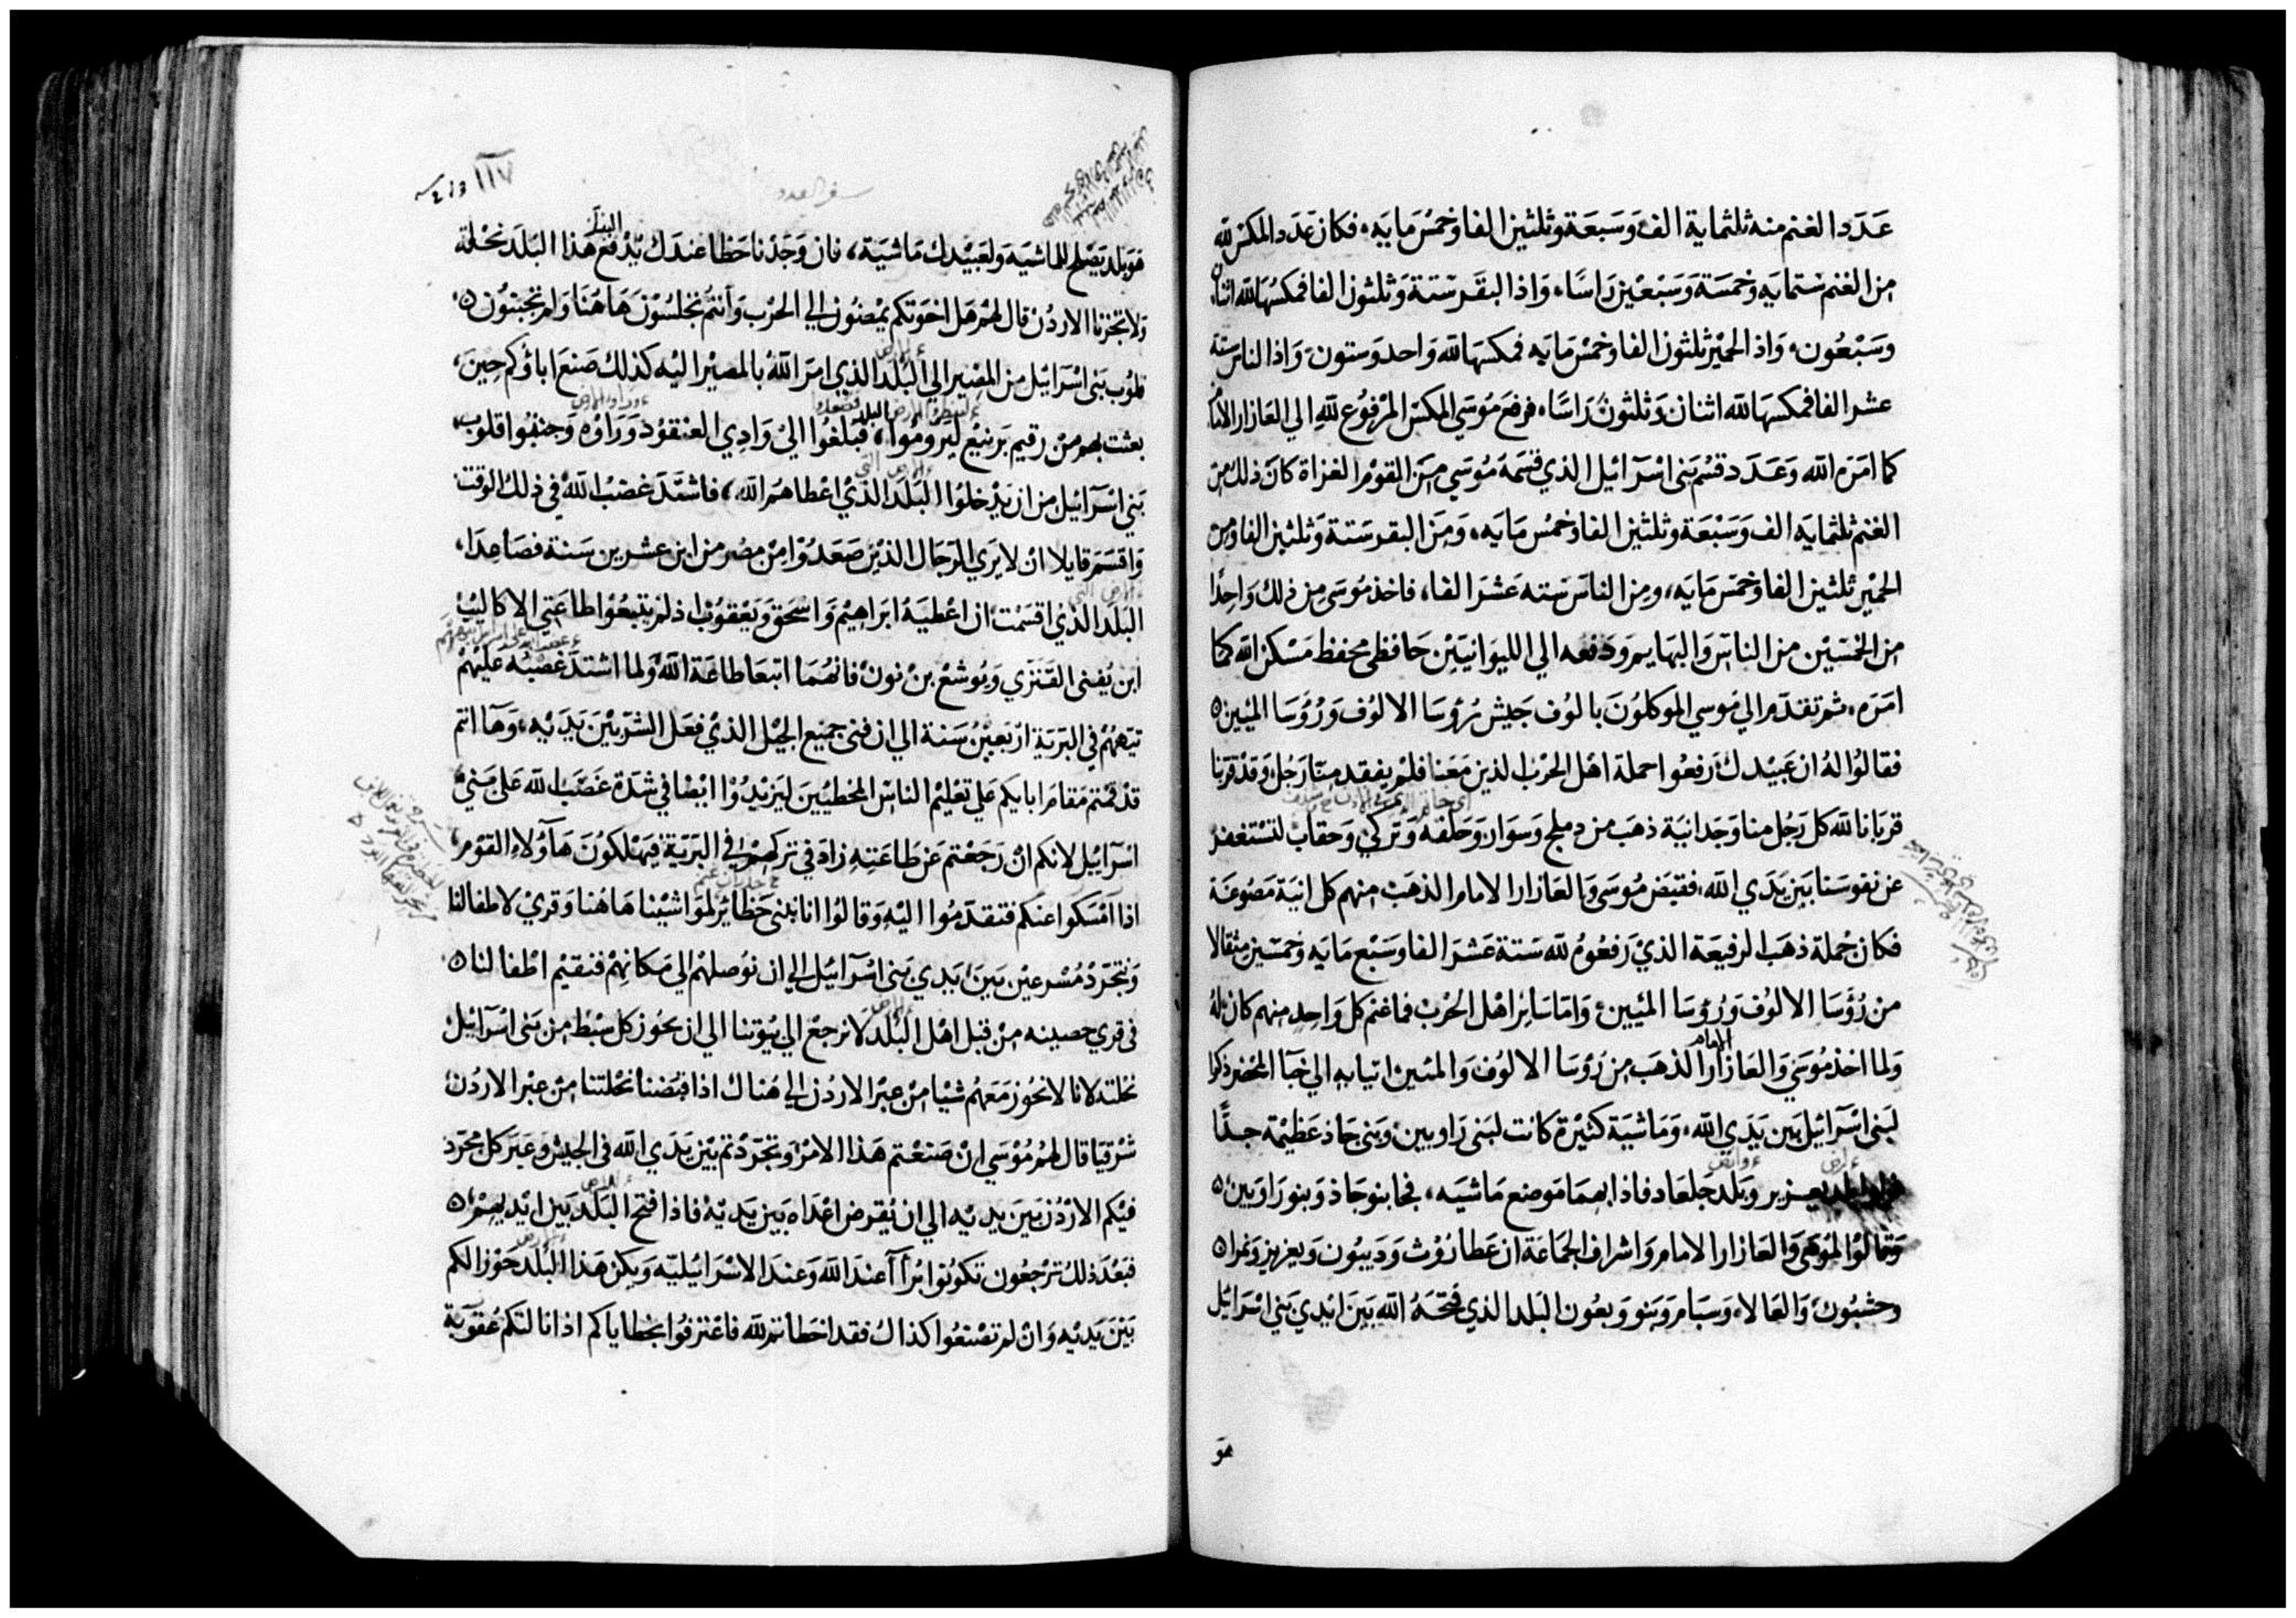 عَدَد الغنم منه ثلثماية الف وَسَبعَة وثلثين الفا وخمسُ مايه، فكان عَدَد المكس لله
من الغنم ستمايه وخمسَة وَسَبْعيْن رَاسًا، وَاذا البقَر ستة وَثلثون الفا فمكسهَا لله اثنان
وسَبْعُون، وَاذ الحميْر ثلثون الفا وخمسْ مايه فمكسهَا لله وَاحد وستون، وَاذا الناس ستة
عشر الفا فمكسهَا لله اثنان وَثلثون رَاسًا، فرفعَ مُوسَي المكس المرْفوُع للهِ الي العَازار الامام
كما امَرَه الله وَعَدَد قسْم بَني اسْرَائيل الذي قسَمَه مُوسَي منَ القوْم الغزاة كانَ ذلك من
الغنم ثلثمايَه الف وَسَبْعَة وثلثين الفا وخمسُ مَايَه، وَمنَ البقر ستة وَثلثين الفا ومن
الحمير ثلثين الفا وخمسَ مَايَه، ومن الناسَ سَته عَشرَ الفا، فاخذ مُوسَى من ذلك وَاحِدًا
من الخمسَيْن من الناسَ وَالبهَايم وَدفعه الي الليوَانيّيْن حَافظي محفظ مَسْكن الله كما
امَرَه، ثم تقدَّم الي مُوسي الموكلوُنَ بالوُف جَيش رُؤسَا الالوُف وَرُؤسَا الميين
فقالوُا لهُ ان عَبيْدك رَفعُوا جملة اهْل الحرْب الذين مَعَنا فلمْ يفقد منا رَجُل، وَقدْ قرّبنا
قربَانا لله كل رَجُل منا وَجَد انية ذهَب من دملج وَسوَار وَحَلقه وَتركي وَحقاب لنسْتغفر
عن نفوسَنا بَين يَدَي الله، فقبَض مُوسَي وَالعَازار الامام الذهَبْ منهم كل انيَة مَصُوغَة
فكان جُملة ذهَب الرفيعَة الذيْ رَفعُوهُ لله سَتة عَشرَ الفا وسَبْع مايَه وخمسّين مثقالا
من رُؤسَا الالوُف وَرُؤسَا الميّين، وَامّا سَائر اهْل الحُرْب فماغنم كل وَاحِد منهم كان لهُ
ولما اخذ مُوسَي وَالعَازار الامام الذهَب من رُؤسَا الالوُف وَالمئين اتيا به الي خبآ المحضر ذكرا
لبَني اسْرَآئيل بَين يَدَي الله، وَمَاشيَة كثيْرَة كانت لبَني رَاوبيْن وَبني جَاذ عَظيْمة جدًّا
يعزير وَبلد جَلعَاد فاذا بهمَا مَوضع مَاشيَه، فجا بنو جَاذ وَبنو رَاوبَين
وقالوُا لموُسَي وَالعَازار الامام وَاشراف الجمَاعَة ان عَطارُوْث وَديبُون وَيعزير وَنمرا
وحشبُوْن وَالعَالا، وَسَبَام وَنبو وَبعُون البَلد الذي فتحَهُ الله بَين ايْدي بَني اسْرَائيل
هوَ
سفر العدد
١١٧
هوَ بلد يَصْلح للماشيَه وَلعَبيْدك مَاشيَة، فان وَجَدْنا حَظا عندَك يُدْفع هَذا البَلد نحْلة
وَلا تجزنا الاردُن قال لهُم هَل اخوَتكم يمْضوُن الي الحَرْب وَانتُم تجلسُوْن هَاهُنَا وَلم تجبنوُن
قلوُب بَني اسْرَائيل من المصِير الي البَلد الذي امَرَ اللّهُ بالمَصيْر اليْه كذلك صَنعَ اباؤكم حِينَ
بعثت بهم من رقيم بَرنيْع ليَروموُا البلد، فبَلغوُا الي وَادي العنْقوُد وَرَاوْه وَجنفوُا قلوُب
بَني اسْرَآئيل من ان يَدْخلوُا البَلدَ الذيْ اعْطاهمُ الله، فاشتَدَ غضبُ اللّهُ في ذلك الوَقت
وَاقسَمَ قايلا ان لا يَرَي الرّجَال الذيْن صَعَدُوْا مِنْ مصْر من ابن عشرين سَنة فصَاعِدَا
البَلد الذي اقسَمْت ان اعْطيَهُ ابرَاهيْم وَاسْحق وَيَعْقوُب اذ لم يتبعُوْا طاعَتي الا كاليْب
ابن يُفني القنَزي وَيُوشعْ بنْ نون فانهُمَا اتبعَا طاعَة اللّه وَلما اشتدّ غضبُه علَيْهمْ
تيّههُمْ في البَريَة ارْبَعِيْن سَنة الي ان فني جميْع الجيْل الذيْ فعَل الشرّ بَيْنَ يَدَيْه، وَهَا انتم
قدْ قمْتم مَقام ابايكم عَلي تعْليْم الناس المخطيّيْنَ ليَزيْدُوْا ايْضا في شدّة غضَب الله عَلى بَني
اسْرَآئيل لانكم انْ رَجَعْتم عَن طاعَتهِ زادَ في تركهمْ في البَريّة فيَهْلكوُنَ هَآؤلاءِ القوْم
اذا امْسَكوا عَنكم فتقدّمُوا اليْه وَقالوُا انا نبْني حَظائر لموَاشيْنا هَاهُنا وَقري لاطفالنا
وَنتجَرّدْ مُسْرعيْن بَيْنَ يَدي بَني اسْرَآئيل الي ان نوُصلهُم الي مَكانهمْ فنقيْم اطفالنا
في قري حصينه منْ قبل اهْل البَلد لا نرجعْ الي بيُوْتنا الي ان يحوُز كل سبْط من بَني اسْرَآئيل
نحْلته لانا لا نحُوز مَعَهُم شيْا منْ عبْر الاردُن الي هُناك اذا قبَضنا نحْلتنا منْ عبْر الاردُن
شرْقيّا قال لهُم مُوْسَي انْ صَنعْتم هَذا الامْر وَتجَرّدْتم بيْن يَدَي الله في الجيْش وَعَبَر كل مجَرّد
فيْكم الارْدُن بَينَ يَديْه الي ان يُقرض اعْدَاه بَين يَديْه فاذا افتح البَلد بَين ايْديهمْ
فبَعْد ذلكَ ترْجعُون تكوُنوا بُرَأ عندَ الله وَعندَ الاسْرَائيليّه وَيكن هَذا البَلد حَوْزا لكم
بَيْنَ يَديْه وَانْ لم تصْنعُوا كذاك فقد اخطاتم لله فاعْترفوُا بخطاياكم اذا نالتكم عُقوبَة